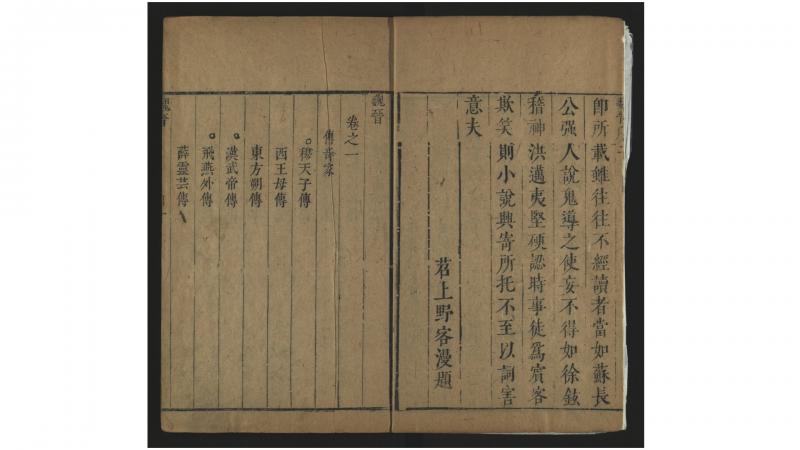 即所載雖往往不經讀者當如蘇長
公强人說鬼導之使妄不得如徐鉉
稽神洪邁夷堅硬認時事徒爲賓客
欺笑則小說興寄所托不至以詞害
意夫
苕上野客漫題
魏晉
卷之一
傳奇家
穆天子傳
西王母傳
東方朔傳
漢武帝傳
飛燕外傳
薛靈芸傳